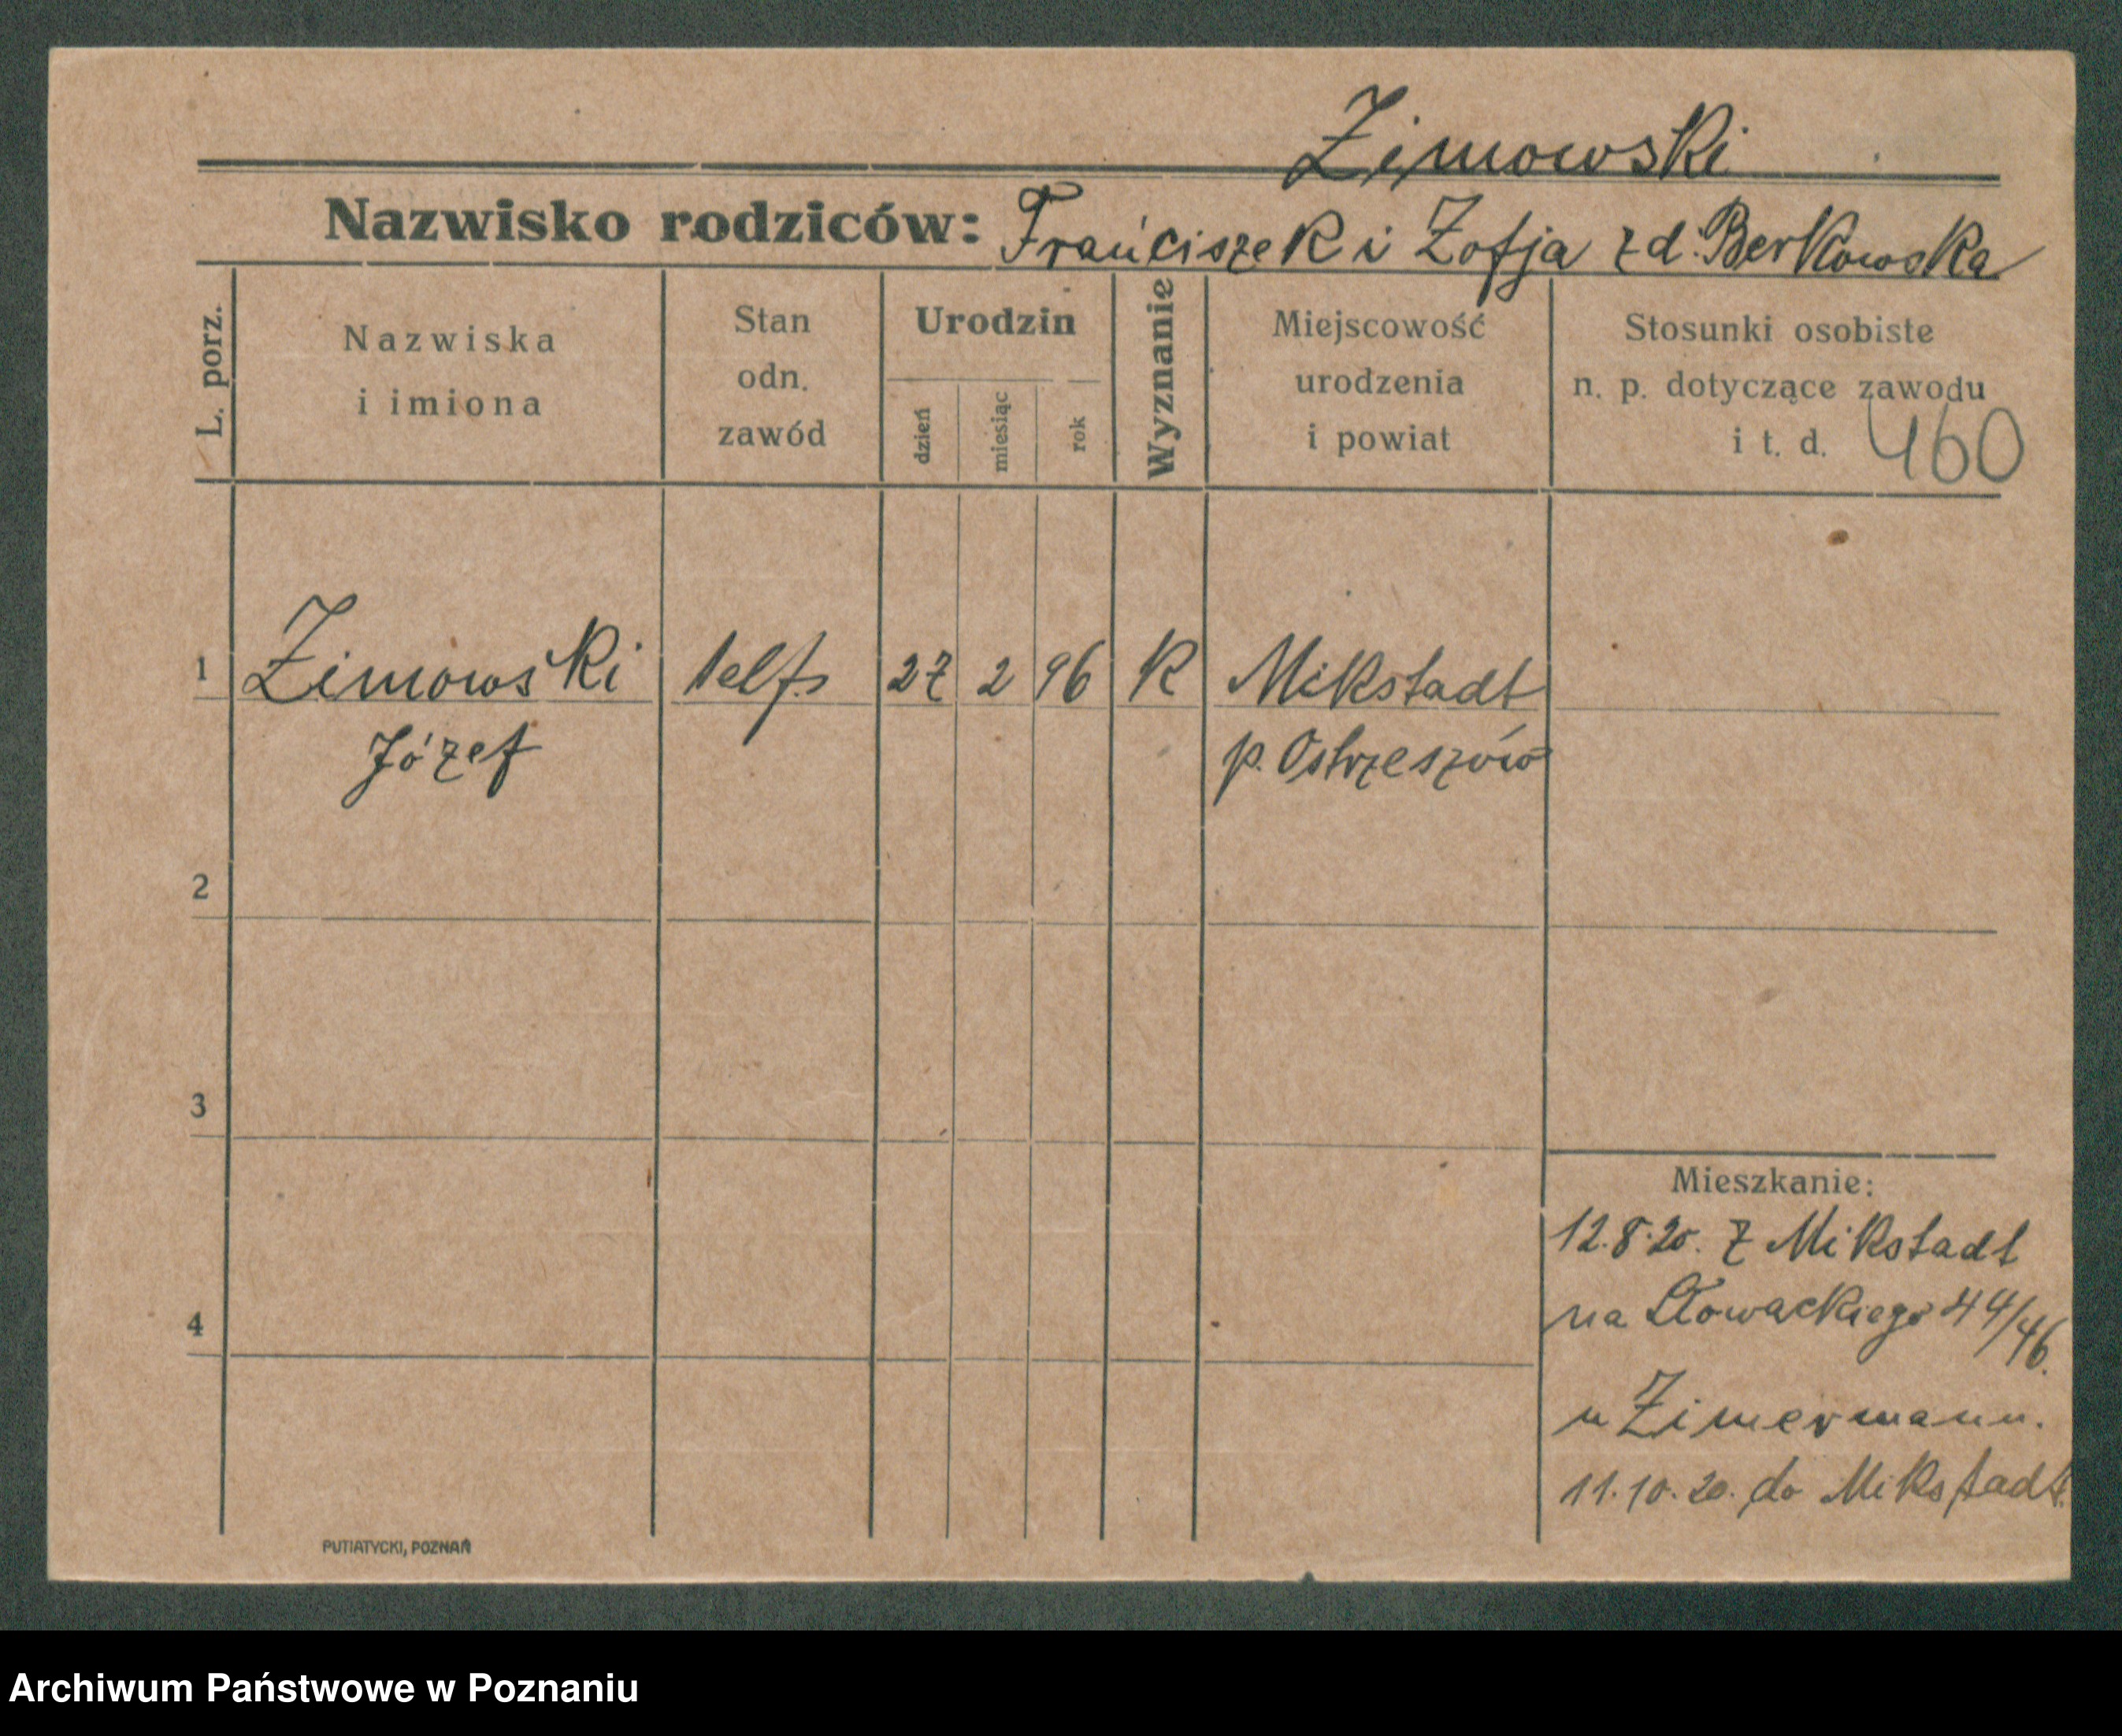 Zimowski
Nazwisko rodziców: Frańciszek i Zofja z d. Berkowska
L. porz.
Nazwiska
i imiona
Stan
odn.
zawód
Urodzin
dzień
miesiąc
rok
Wyznanie
Miejscowość
urodzenia
i powiat
Stosunki osobiste
n. p. dotyczące zawodu
i t. d.
460
1 Zimowski 27 2 96 K Mikstadt
Józef p. Ostrzeszów
2
3
4
Mieszkanie:
12.8.20. z Mikstadt
na Słowackiego 44/46.
u Zimermann.
11.10.20. do Mikstadt.
PUTIATYCKI, POZNAŃ
Archiwum Państwowe w Poznaniu